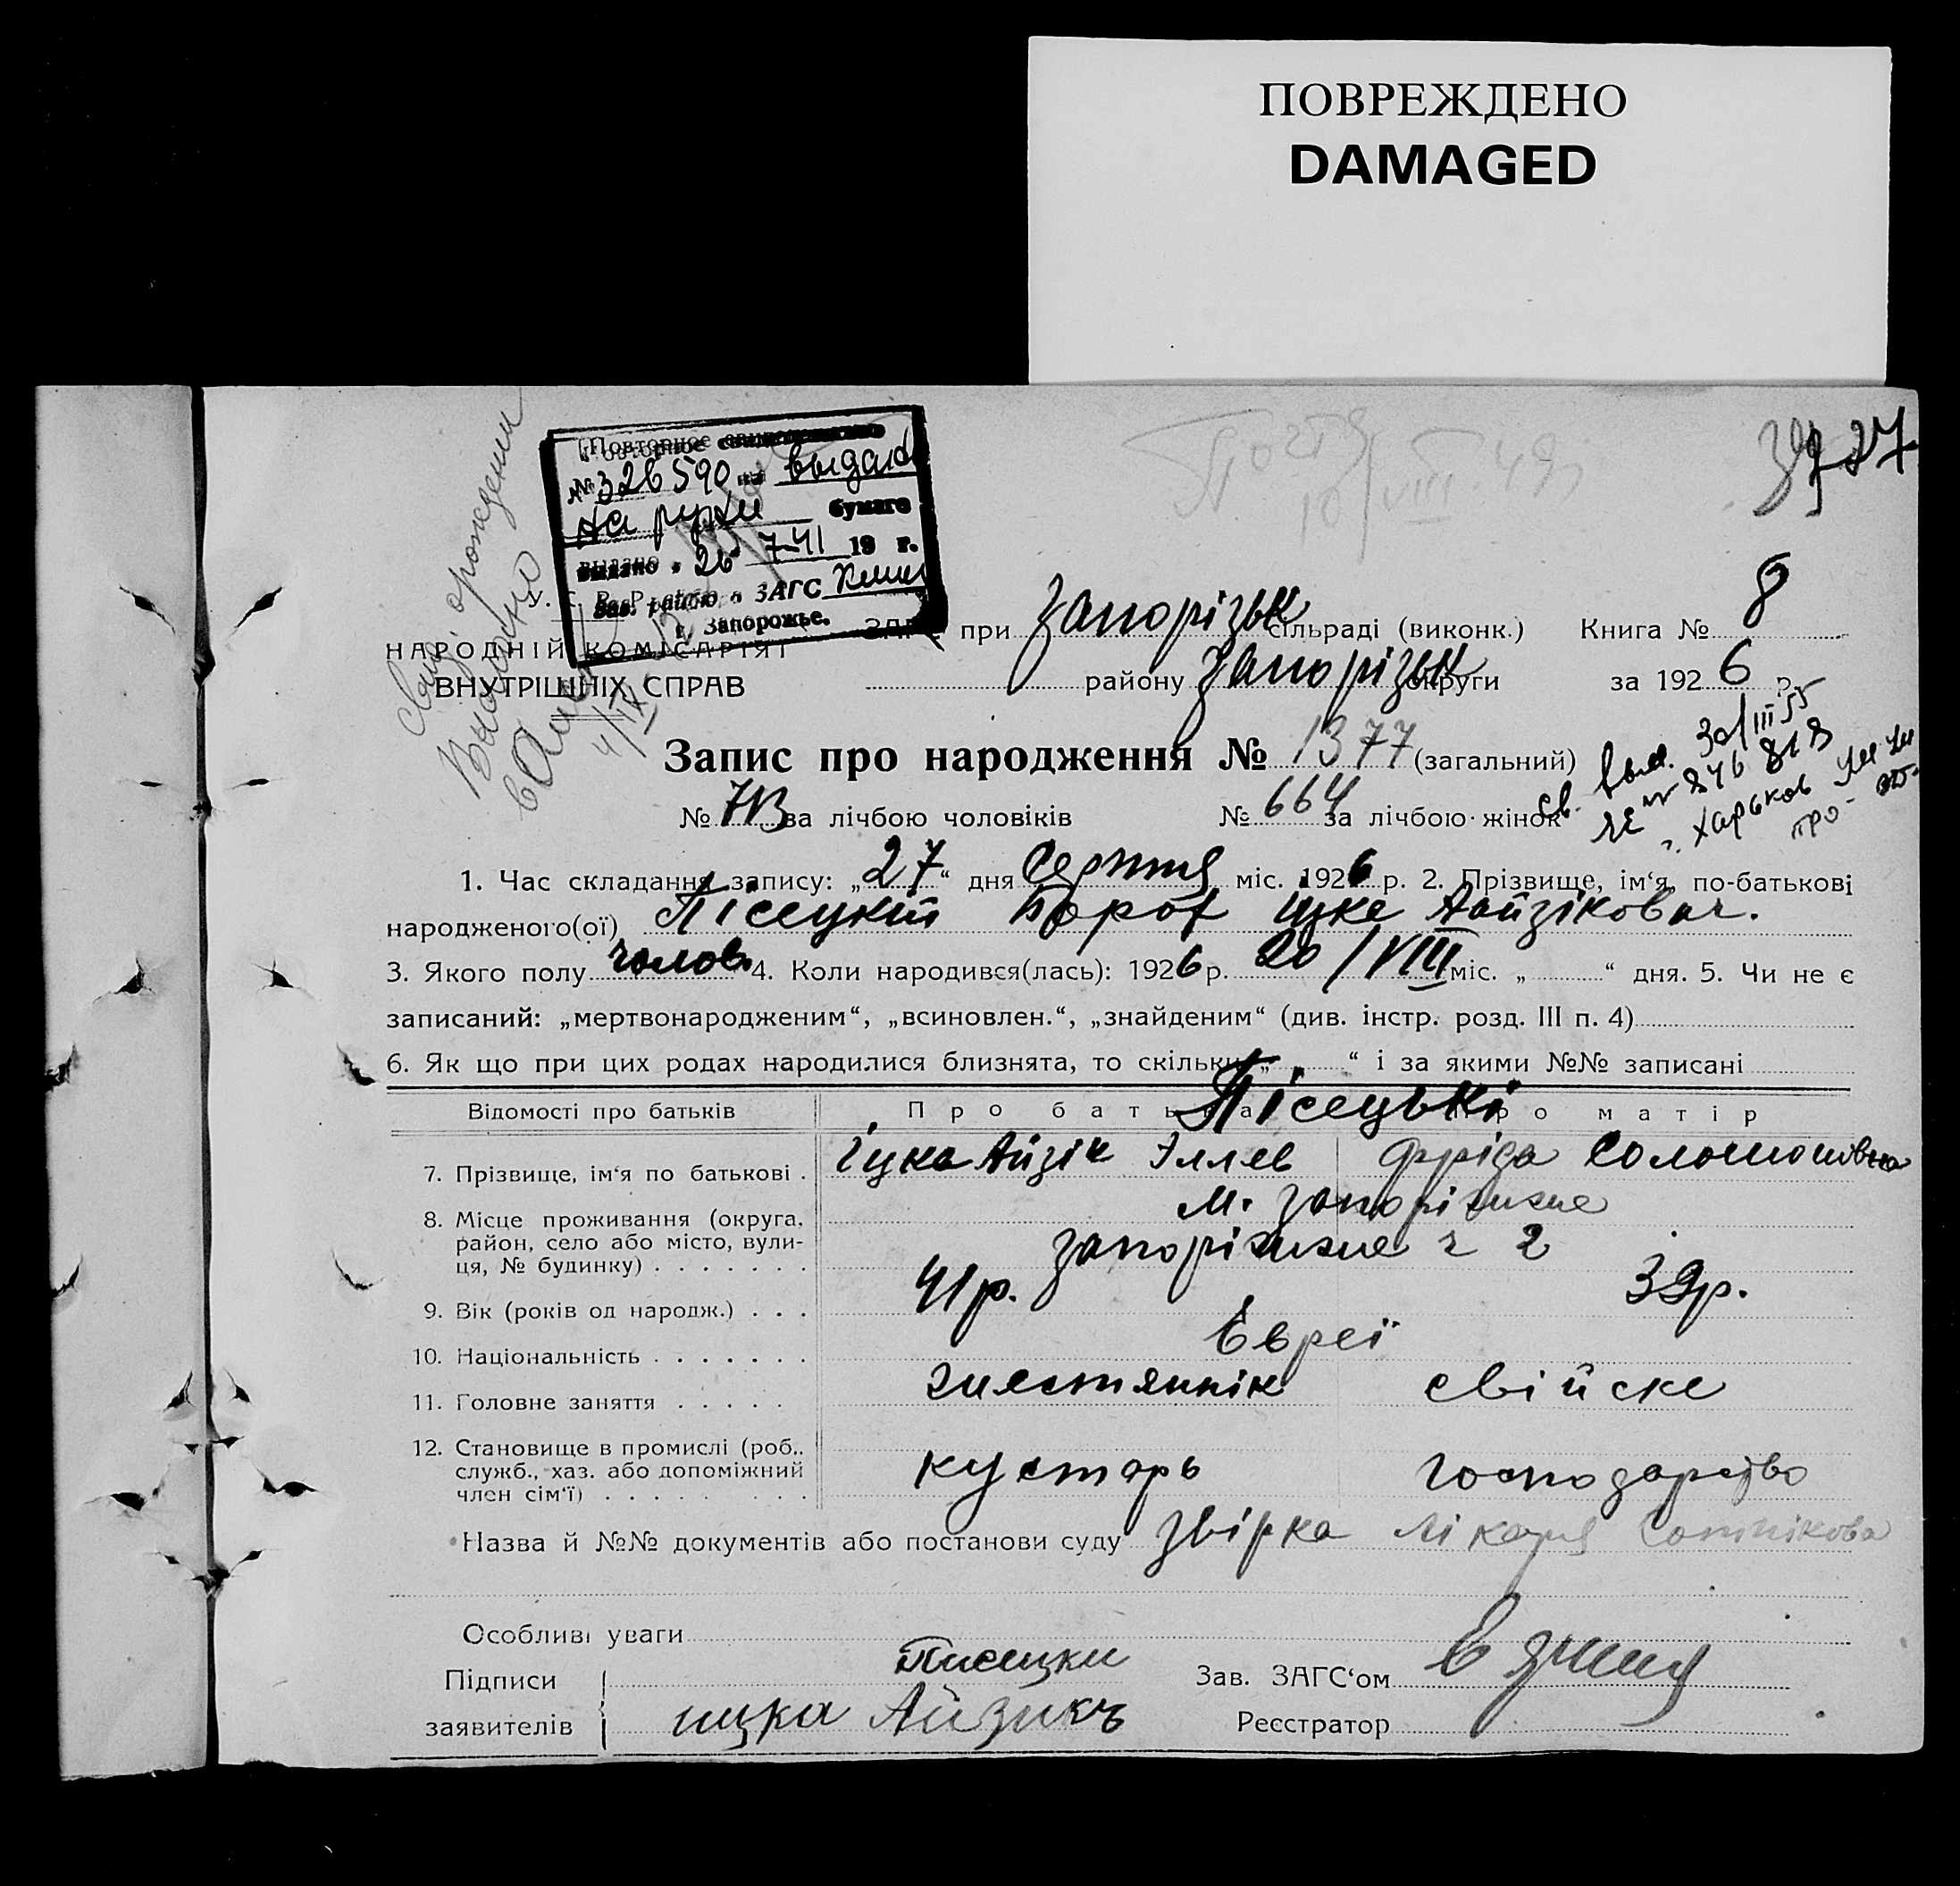 ПОВРЕЖДЕНО
DAMAGED
Повторное
№ 326590 на выдано
на руки бумаге
выдано „26 7-41 19 г.
Зав. ЗАГС
г. Запорожье.
10/VIII.49
3927
рождении
4/IX
ЗАГС при Запорізьк сільраді (виконк.) Книга № 8
НАРОДНІЙ КОМІСАРІЯТ
ВНУТРІШНІХ СПРАВ району Запорізьк округи за 1926 р.
Запис про народження № 1377 (загальний)
№ 713 за лічбою чоловіків № 664 за лічбою жінок
св. выд. 30/III 55
г. Харьков
1. Час складання запису: „27“ дня Серпня міс. 1926 р. 2. Прізвище, ім‘я, по-батькові
народженого(ої) Пісецкий Борох Іцке Аайзікович.
3. Якого полу чолов. 4. Коли народився(лась): 1926 р. 20/VIII міс. „ “ дня. 5. Чи не є
записаний: „мертвонародженим“, „всиновлен.“, „знайденим“ (див. інстр. розд. III п. 4)
6. Як що при цих родах народилися близнята, то скільки „ “ і за якими №№ записані
Відомості про батьків Про батька Пісецькі Про матір
7. Прізвище, ім‘я по батькові . Іцка Айзік Эллев Фріда Соломонівна
8. Місце проживання (округа, м. Запоріжже
район, село або місто, вули-
ця, № будинку) . . . . . . . Запоріжже ч 2
9. Вік (років од народж.) . . . 41р. 39р.
10. Національність . . . . . . . Євреї
11. Головне заняття . . . . . жестяннік свійске
12. Становище в промислі (роб.,
служб., хаз. або допоміжний кустарь господарство
член сім‘ї) . . . . . . . .
Назва й №№ документів або постанови суду звірка лікаря Сотнікова
Особливі уваги
Підписи Писецки Зав. ЗАГС‘ом
заявителів ицка Айзикъ Реєстратор